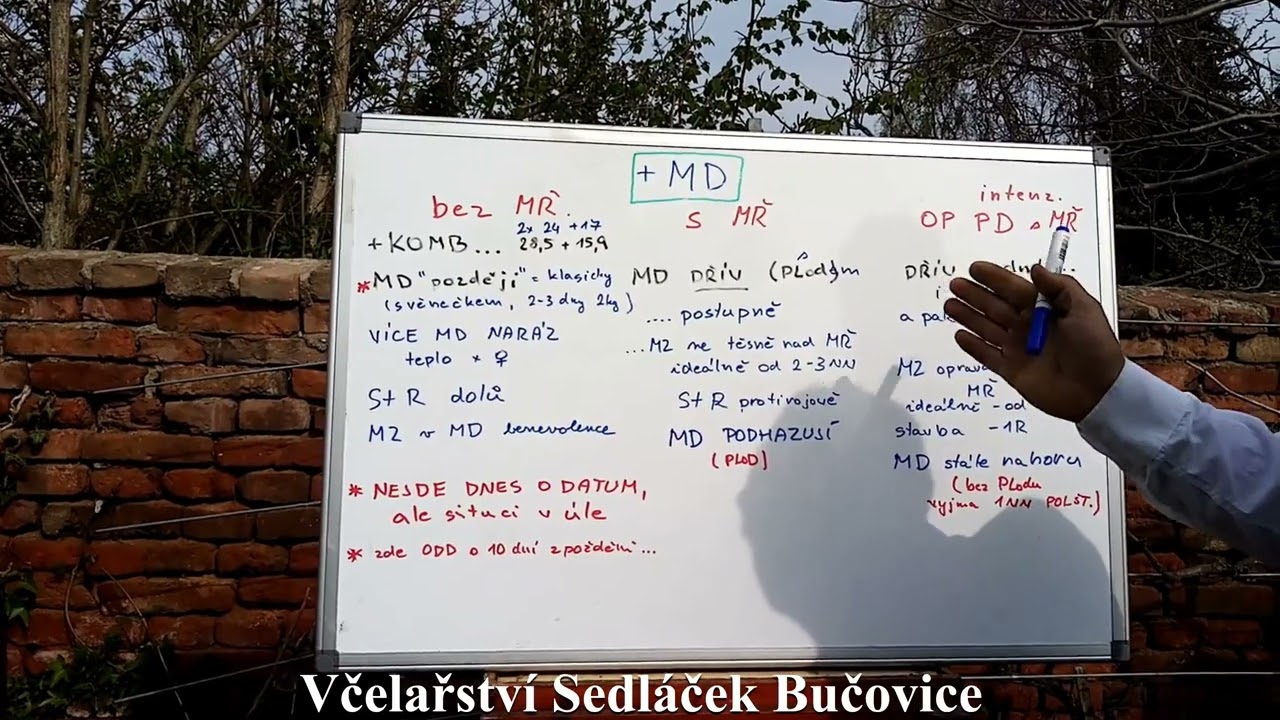 + MD
bez MŘ.
2x 24 + 17
+ KOMB... 28,5 + 15,9
* MD "později" = klasicky
(s věnečkem, 2-3 dny 2kg)
VÍCE MD NARÁZ
teplo + ♀
St R dolů
MZ v MD benevolence
* NEJDE DNES O DATUM,
ale situci v úle
* zde ODD o 10 dní zpoždění...
s MŘ
MD DŘÍV (PLodem
.... postupně
...MZ ne těsně nad MŘ
ideálně od 2-3NN
St R protirojově
MD PODHAZUJÍ
(PLOD)
intenz.
OP PD s MŘ
DŘÍV
i
a
MZ
MŘ
ideálně - od
stavba - 1R
MD stále nahoru
(bez PLodu
vyjma 1NN POLŠT.)
Včelařství Sedláček Bučovice